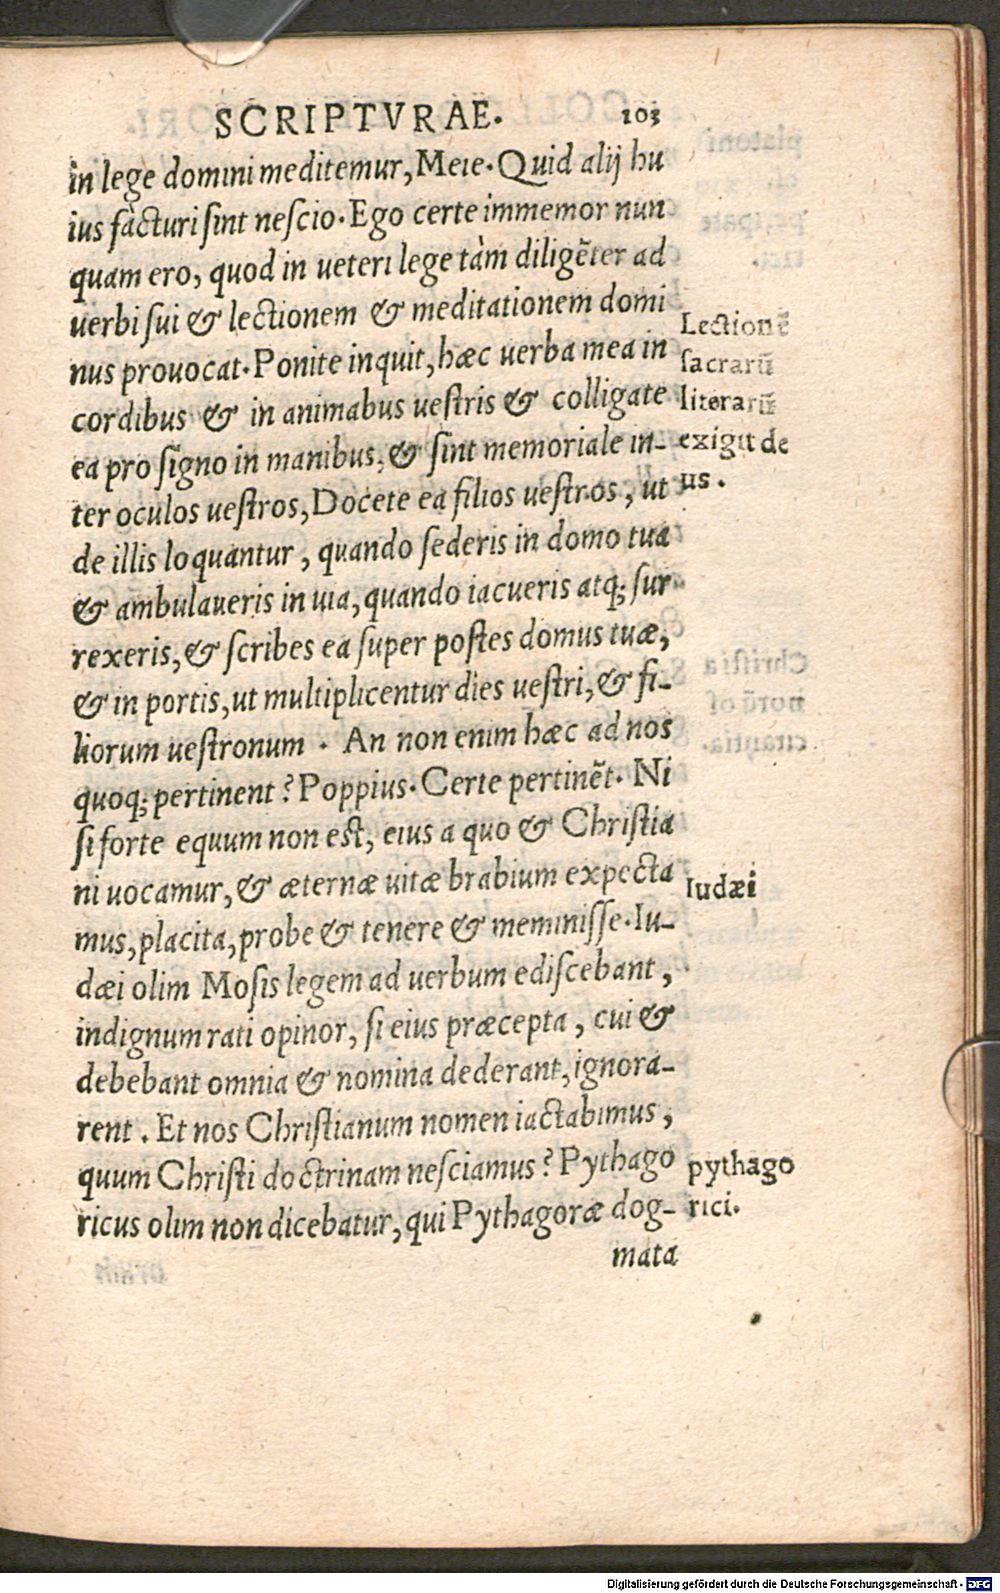 SCRIPTVRAE. 103
in lege domini meditemur, Meie. Quid alij hu
ius fàcturi sint nescio. Ego certe immemor nun
quam ero, quod in ueteri lege tàm diligẽter ad
uerbi sui & lectionem & meditationem domi
nus prouocat. Ponite inquit, hæc uerba mea in
cordibus & in animabus uestris & colligate
ea pro signo in manibus, & sint memoriale in-
ter oculos uestros, Docete ea filios uestros, ut
de illis loquantur, quando sederis in domo tua
& ambulaueris in uia, quando iacueris atq; sur
rexeris, & scribes ea super postes domus tuæ,
& in portis, ut multiplicentur dies uestri, & fi-
liorum uestronum. An non enim hæc ad nos
quoq; pertinent? Poppius. Certe pertinẽt. Ni
si forte equum non est, eius a quo & Christia
ni uocamur, & æternæ uitæ brabium expecta
mus, placita, probe & tenere & meminisse. Iu-
dæi olim Mosis legem ad uerbum ediscebant,
indignum rati opinor, si eius præcepta, cui &
debebant omnia & nomina dederant, ignora-
rent. Et nos Christianum nomen iactabimus,
quum Christi doctrinam nesciamus? Pythago
ricus olim non dicebatur, qui Pythagoræ dog-
mata
Lectionẽ
sacrarũ
literarũ
exigit de
us.
Iudæi
pythago
rici.
Digitalisierung gefördert durch die Deutsche Forschungsgemeinschaft - DFG